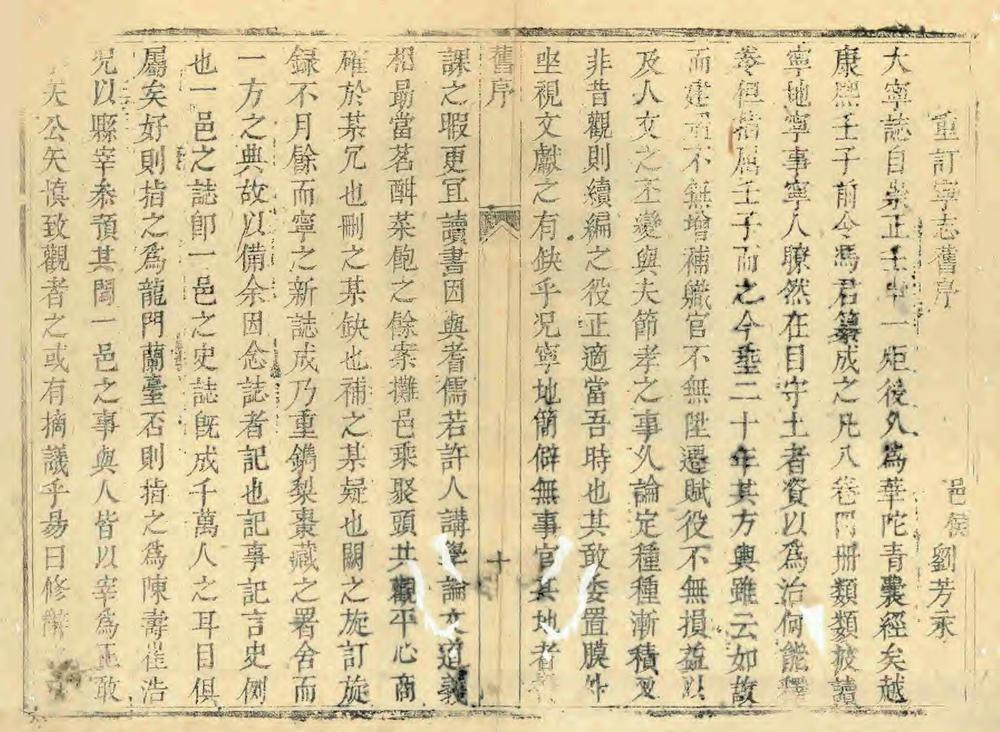 重訂寧志舊序
邑侯劉芳永
大寧誌自崇正壬申一炬後久為華陀青囊經矣越
康熙壬子前令馮君纂成之凡八巷門册類類披讀
寧地寧事寧人瞭然在目守土者資以為治何能釋
卷但指屈壬子而之今埀二十年其方輿雖云如故
而建置不無增補職官不無陞遷賦役不無損益以
及人文之丕變與夫節孝之事久論定種種漸積又
非昔觀則續編之役正適當吾時也其敢委置膜外
坐視文獻之有缺乎况寧地簡僻無事官其地者
舊序
十
課之暇更冝讀書因與耆儒若許人講學論文道義
相勗當茗酣菜飽之餘案攤邑乘聚頭共觀平心商
確於某冗也刪之某缺也補之某疑也闕之旋訂旋
録不月餘而寧之新誌成乃重鐫梨棗藏之署舍而
一方之典故以備余因念誌者記也記事記言史例
也一邑之誌卽一邑之史誌旣成千萬人之耳目俱
屬矣好則指之為龍門蘭臺否則指之為陳壽崔浩
况以縣宰叅預其間一邑之事與人皆以宰為正敢
天公矢愼致觀者之或有摘議乎昜曰修辭